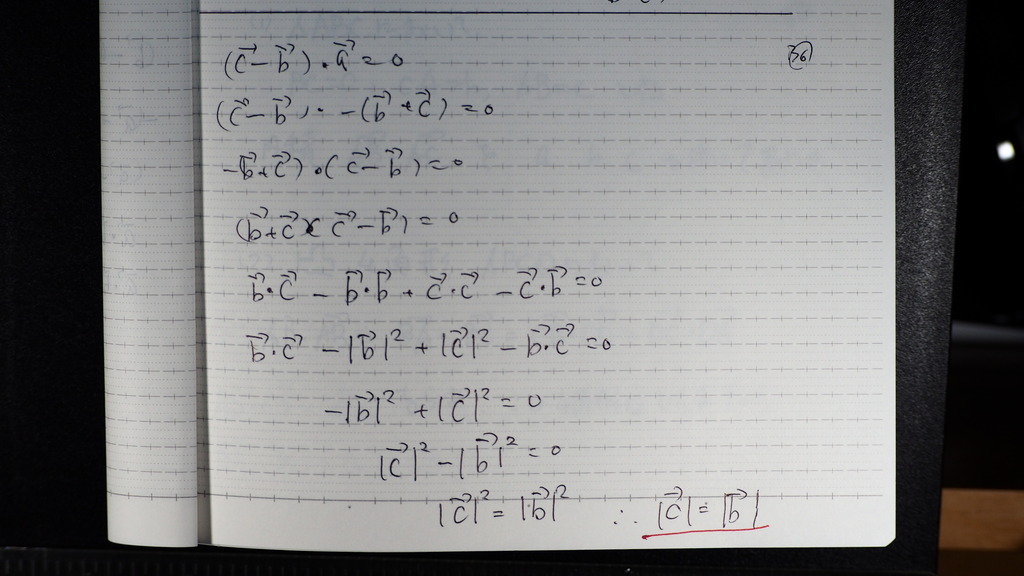 (c⃗ − b⃗) · a⃗ = 0
(c⃗ − b⃗) · −(b⃗ + c⃗) = 0
−b⃗ + c⃗) · (c⃗ − b⃗) = 0
(b⃗ + c⃗)(c⃗ − b⃗) = 0
b⃗·c⃗ − b⃗·b⃗ + c⃗·c⃗ − c⃗·b⃗ = 0
b⃗·c⃗ − |b⃗|² + |c⃗|² − b⃗·c⃗ = 0
−|b⃗|² + |c⃗|² = 0
|c⃗|² − |b⃗|² = 0
|c⃗|² = |b⃗|² ∴ |c⃗| = |b⃗|
36